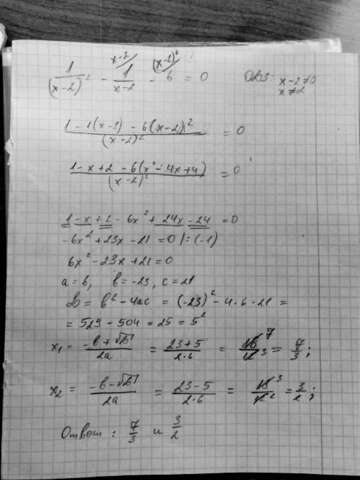 1/(x-2)² - x-2/ 1/(x-2) - (x-2)²/ 6 = 0 ОДЗ: x-2≠0
x≠2
(1-1(x-2)-6(x-2)²)/(x-2)² = 0
(1-x+2-6(x²-4x+4))/(x-2)² = 0
1-x+2-6x²+24x-24=0
-6x²+23x-21=0 |:(-1)
6x²-23x+21=0
a=6, b=-23, c=21
D = b²-4ac = (-23)²-4·6·21 =
= 529-504=25=5²
x₁ = (-b+√D)/2a = (23+5)/(2·6) = 28/12 = 7/3;
x₂ = (-b-√D)/2a = (23-5)/(2·6) = 18/12 = 3/2;
Ответ: 7/3 и 3/2